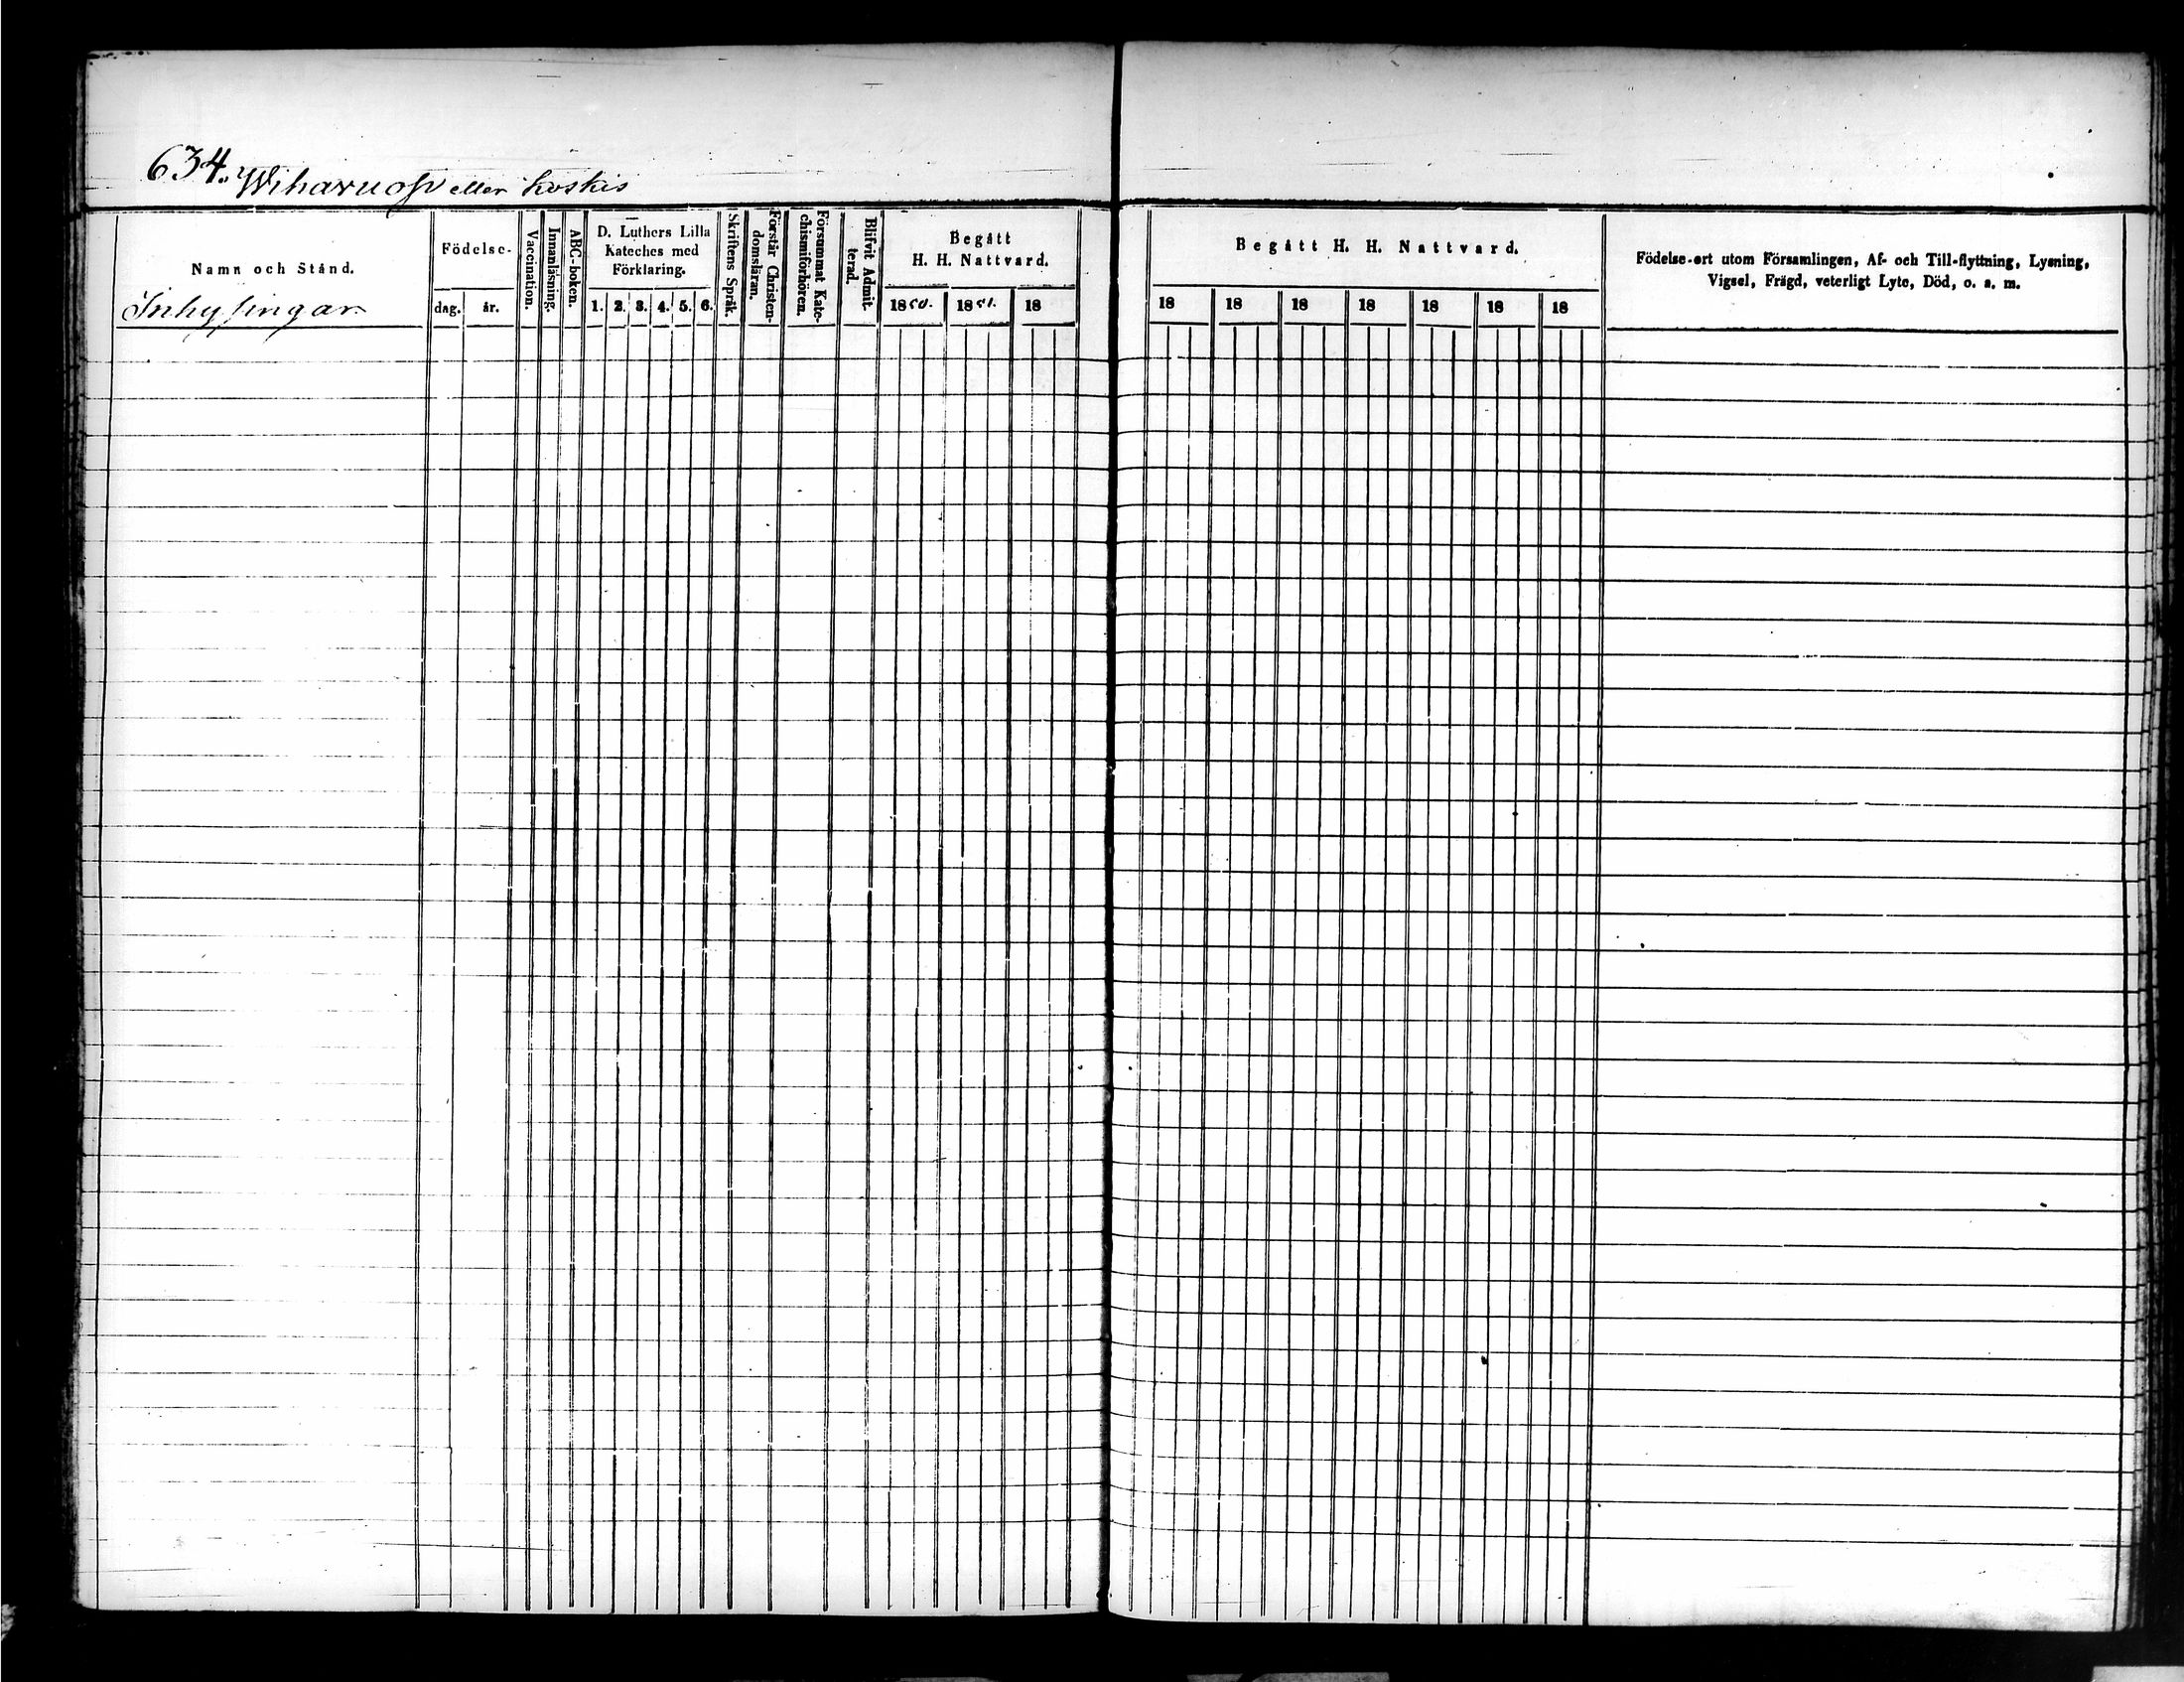 634. Wiharuoja eller Koskis
Namn och Stånd.
Inhysingar.
Födelse-
dag. år.
Vaccination.
Innanläsning.
ABC-boken.
D. Luthers Lilla
Kateches med
Förklaring.
1. 2. 3. 4. 5. 6.
Skriftens Språk.
Förstår Christen-
domsläran.
Försummat Kate-
chismiförhören.
Blifvit Admit-
terad.
Begått
H. H. Nattvard.
1850. 1851. 18
Begått H. H. Nattvard.
18 18 18 18 18 18 18
Födelse-ort utom Församlingen, Af- och Till-flyttning, Lysning,
Vigsel, Frägd, veterligt Lyte, Död, o. s. m.